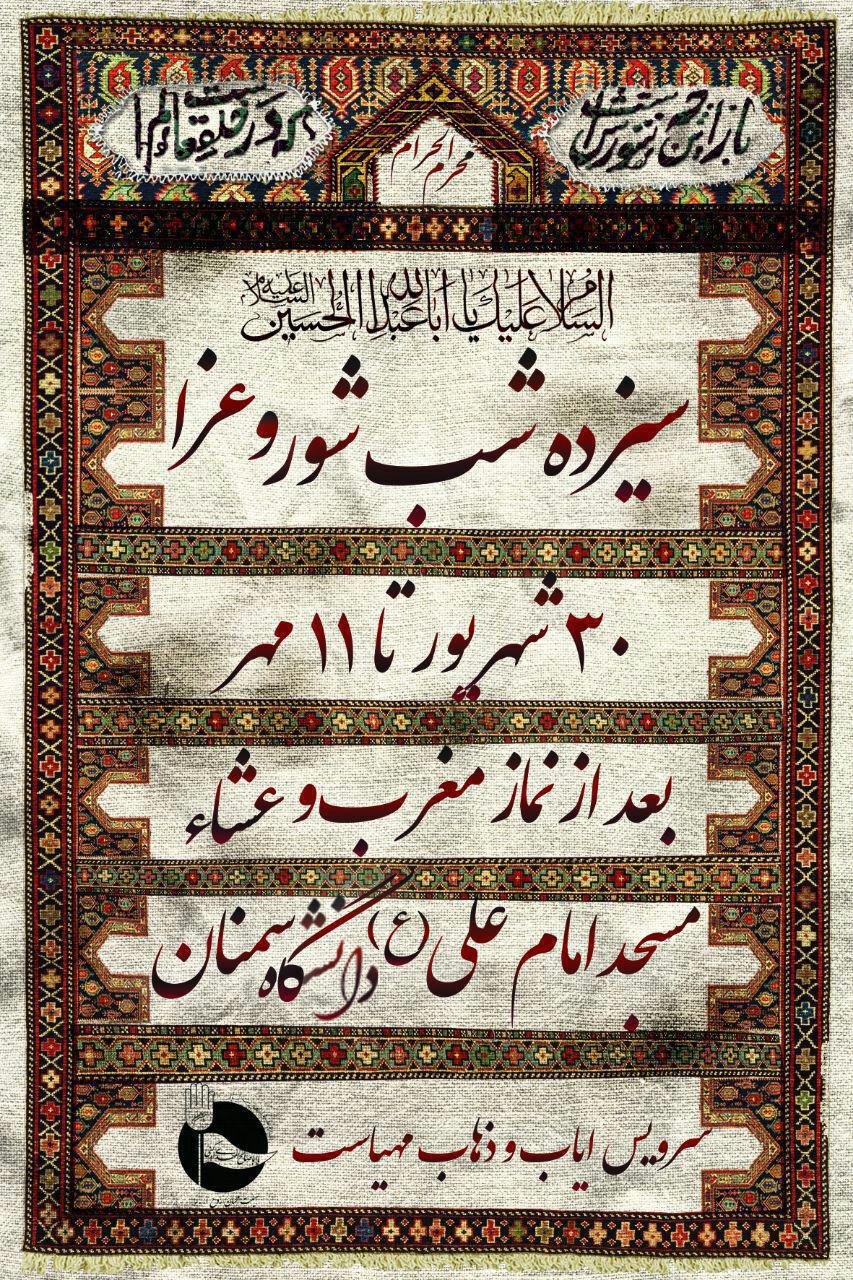 باز این چه شورش است
که در خلق عالم است
محرم الحرام
السلام علیک یا اباعبدالله الحسین علیه السلام
سیزده شب شور و عزا
۳۰ شهریور تا ۱۱ مهر
بعد از نماز مغرب و عشاء
مسجد امام علی (ع) دانشگاه سمنان
سرویس ایاب و ذهاب مهیاست